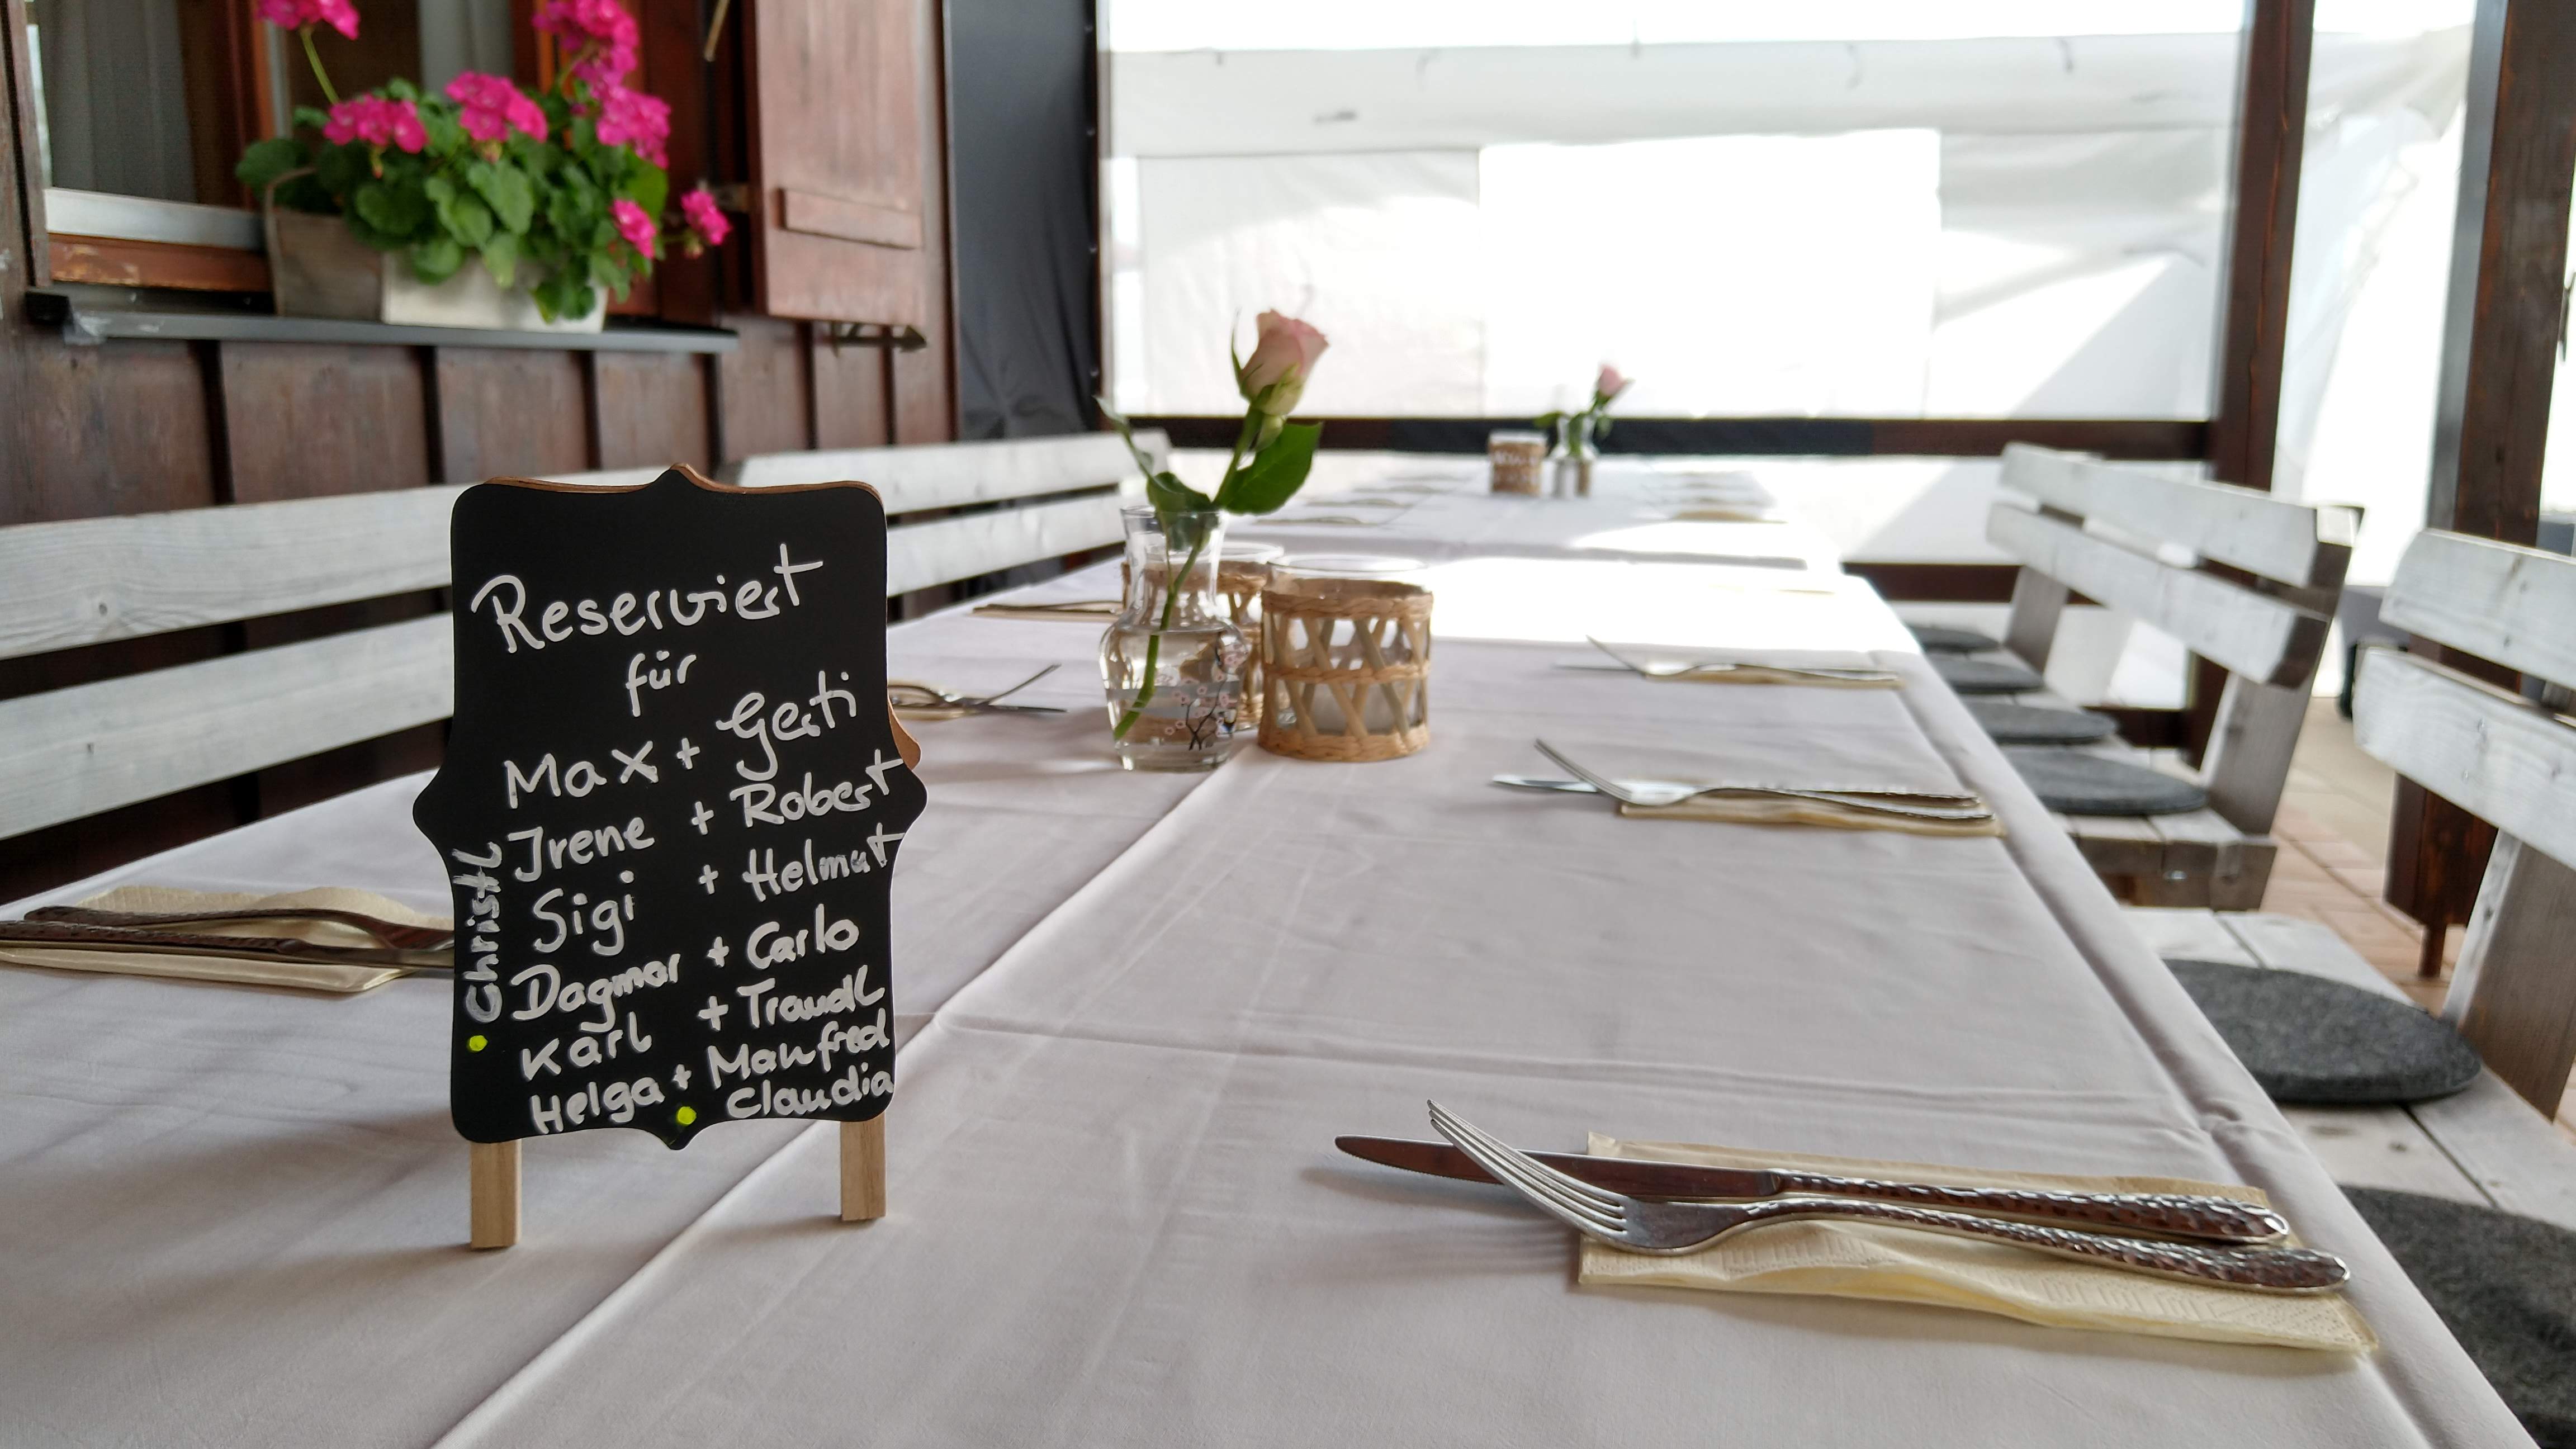 Reserviert
für
Max + Gerti
Irene + Robert
Sigi + Helmut
Dagmar + Carlo
Karl + Traudl
Helga + Manfred
Claudia
Christl